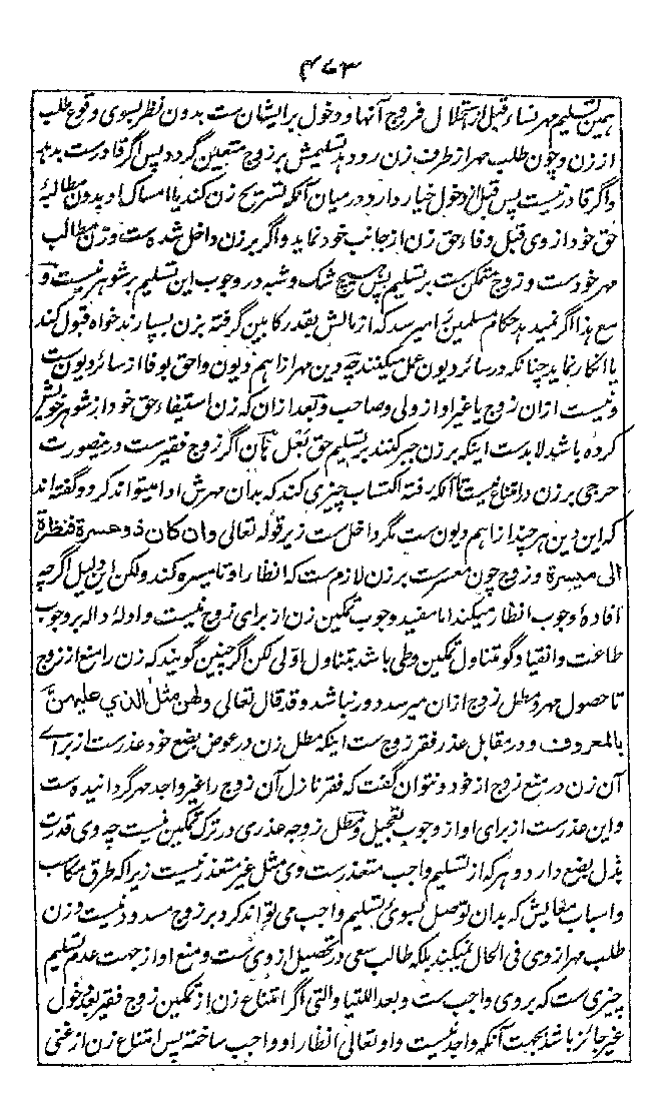 ۴۷۳
همین تسلیم مهر نساء قبل از استحلال فروج آنها و دخول بر ایشان ست بدون نظر بسوی وقوع طلب
از زن و چون طلب مهر از طرف زن رو دهد تسلیمش بر زوج متعین گردد پس اگر قادرست بدهد
و اگر قادر نیست پس قبل از دخول خیار دارد در میان آنکه تسریح زن کند یا امساک او بدون مطالبهٔ
حق خود از وی قبل وفاء حق زن از جانب خود نماید و اگر بر زن داخل شده ست و زن مطالب
مهر خودست و زوج متمکن ست بر تسلیم پس هیچ شک و شبه در وجوب این تسلیم بر شوهر نیست و
مع هذا اگر نمیدهد حکام مسلمین را میرسد که از مالش بقدر کابین گرفته بزن بسپارند خواه قبول کند
یا انکار نماید چنانکه در سائر دیون عمل میکنند چه دین مهر از اهم دیون و احق بوفا از سائر دیون ست
و نیست از ان زوج یا غیر او از ولی و صاحب و بعد ازان که زن استیفاء حق خود از شوهر خویش
کرده باشد لابدست اینکه بر زن جبر کنند بر تسلیم حق بعل بآن اگر زوج فقیرست درینصورت
حرجی بر زن در امتناع نیست تا آنکه رفته اکتساب چیزی کند که بدان مهرش ادا میتواند کرد و گفته اند
که این دین هر چند از اهم دیون ست مگر داخل ست زیر قوله تعالی وان کان ذو عسرة فنظرة
الی میسرة و زوج چون معسرست بر زن لازم ست که انظار او تا میسره کند ولکن این دلیل اگرچه
افادهٔ وجوب انظار میکند اما مفید وجوب تمکین زن از برای زوج نیست و ادلهٔ داله بر وجوب
طاعت و انقیاد گو متناول تمکین وطی باشد بتناول اولی لکن اگر چنین گویند که زن را منع از زوج
تا حصول مهر و مطل زوج ازان میرسد دور نباشد و قد قال تعالی ولهن مثل الذي علیهن
بالمعروف و در مقابل عذر فقر زوج ست اینکه مطل زن در عوض بضع خود عذرست از برای
آن زن در منع زوج از خود و نتوان گفت که فقر نازل آن زوج را غیر واجد مهر گردانیده ست
و این عذرست از برای او از وجوب تعجیل و مطل زوجه عذری در ترک تمکین نیست چه وی قدرت
بذل بضع دارد و هر که از تسلیم واجب متعذرست وی مثل غیر متعذر نیست زیرا که طرق مکاسب
و اسباب معایش که بدان توصل بسوی تسلیم واجب می تواند کرد بر زوج مسدود نیست و زن
طلب مهر از وی فی الحال نمیکند بلکه طالب سعی در تحصیل از وی ست و منع او از جهت عدم تسلیم
چیزی ست که بروی واجب ست و بعد اللتیا والتی اگر امتناع زن از تمکین زوج فقیر بعد دخول
غیر جائز باشد بجهت آنکه واجد نیست و او تعالی انظار او واجب ساخته پس امتناع زن از غنی